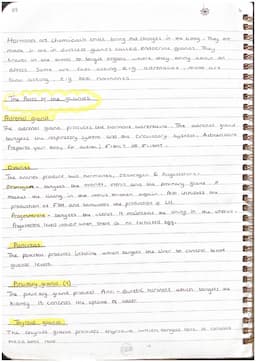 Hormones are chemicals that bring about changes in the body. They are
made in ductless glands called endocrine glands. They
travel in the blood to target organs where they bring about an
effect. Some are fast acting e.g. adrenaline, some are
slow acting e.g. sex hormones.
The Roles of the glands
Adrenal gland
The adrenal gland produces the hormone adrenaline. The adrenal gland
targets the respiratory system and the circulatory system. Adrenaline
prepares your body for action, FIGHT or FLIGHT.
Ovaries
The ovaries produce two hormones, Oestrogen & Progesterone.
Oestrogen - targets the ovaries, uterus and the pituitary gland. It
makes the lining in the uterus thicken again. Also inhibits the
production of FSH and stimulates the production of LH.
Progesterone - targets the uterus. It maintains the lining in the uterus.
Progesterone levels lower when there is no fertilised egg.
Pancreas
The pancreas produces insulin which targets the liver to control blood
glucose levels.
Pituitary gland
The pituitary gland produces Anti-diuretic hormone which targets the
kidney. It controls the uptake of water.
Thyroid gland
The thyroid gland produces thyroxine which targets